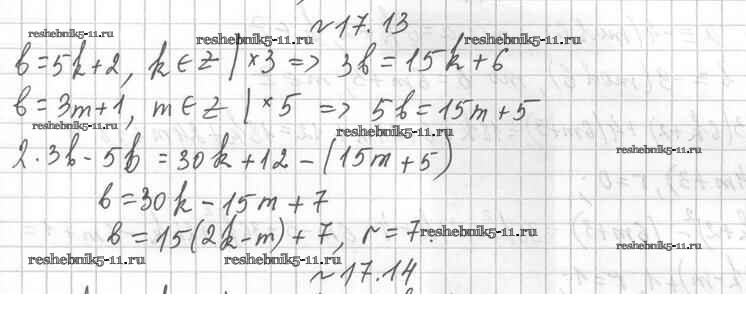 №17.13
reshebnik5-11.ru reshebnik5-11.ru
b=5k+2, k∈z |×3 => 3b=15k+6
b=3m+1, m∈z |×5 => 5b=15m+5
reshebnik5-11.ru reshebnik5-11.ru reshebnik5-11.ru
2·3b-5b=30k+12-(15m+5)
b=30k-15m+7
b=15(2k-m)+7, r=7.
reshebnik5-11.ru reshebnik5-11.ru reshebnik5-11.ru
reshebnik5-11.ru reshebnik5-11.ru
№17.14